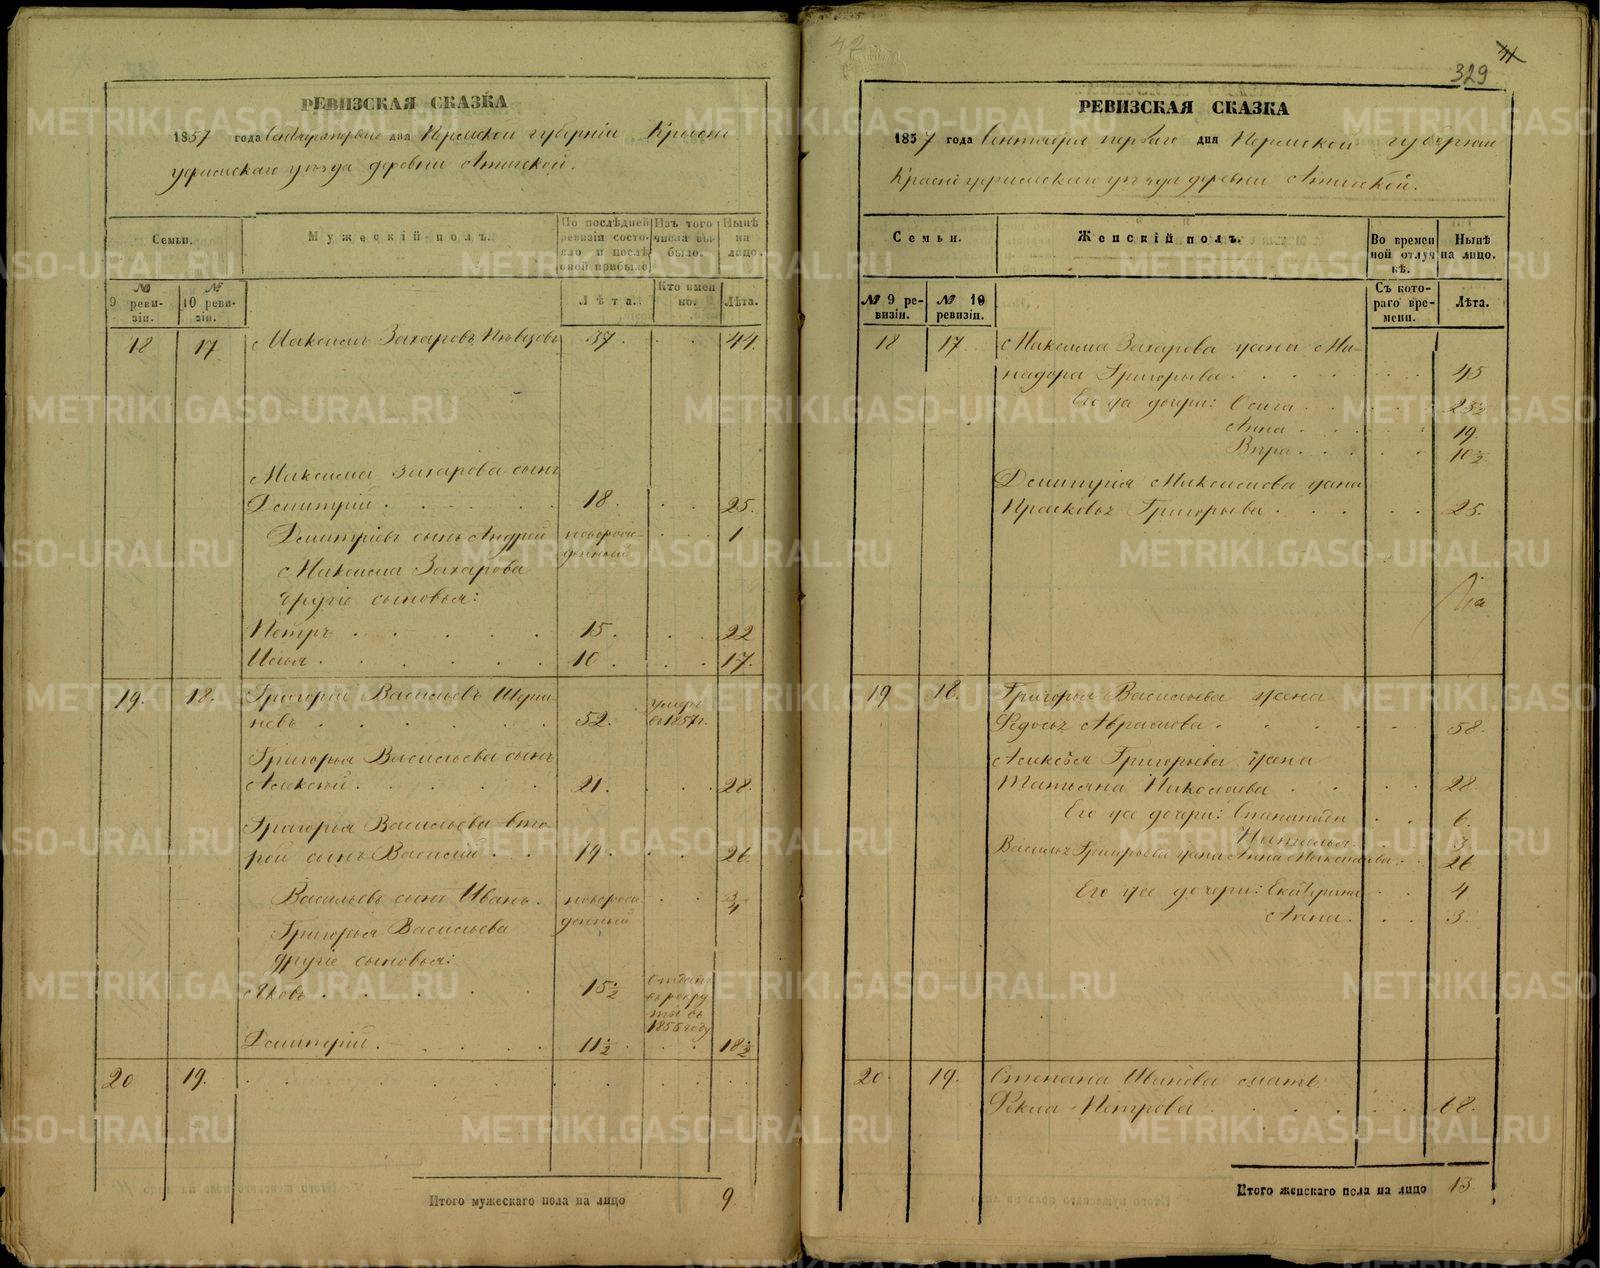 42
41
329
РЕВИЗСКАЯ СКАЗКА
1857 года Сентября первого дня Пермской губерніи Красно
уфимскаго уѣзда деревни Атигской.
Семьи.
Мужескій полъ.
По послѣдней ревизіи состояло и послѣ оной прибыло
Изъ того числа выбыло.
Нынѣ на лицо.
№ 9 ревизіи.
№ 10 ревизіи.
Лѣта.
Кто именно.
Лѣта.
18 17 Максимъ Захаровъ 37. 44.
Максима Захарова сынъ
Дмитрій 18. 25.
Дмитріевъ сынъ Андрей новорожденный 1
Максима Захарова
другіе сыновья:
Петръ 15. 22
Илья 10. 17.
19. 18. Григорій Васильевъ
52. умеръ въ 1857 г.
Григорья Васильева сынъ
Алексѣй 21. 28.
Григорья Васильева вто
рой сынъ Василій 19. 26.
Васильевъ сынъ Иванъ. новорожденный 3/4
Григорья Васильева
другіе сыновья:
Яковъ 15 1/2 Отданъ въ рекруты въ 1855 году
Дмитрій 11 1/2 18 1/2
20 19.
Итого мужескаго пола на лицо 9.
РЕВИЗСКАЯ СКАЗКА
1857 года Сентября перваго дня Пермской губерніи
Красноуфимскаго уѣзда деревни Атигской.
Семьи.
Женскій полъ.
Во временной отлучкѣ.
Нынѣ на лицо.
№ 9 ревизіи.
№ 10 ревизіи.
Съ котораго времени.
Лѣта.
18 17 Максима Захарова жена Ми-
надора Григорьева 45
Его же дочери: 23 1/2
Анна 19.
Вѣра 10 1/2
Дмитрія Максимова жена
Прасковья Григорьева 25.
19 18. Григорья Васильева жена
Федосья Абрамова 58.
Алексѣя Григорьева жена
Татьяна Николаева 28.
Его же дочери: Степанида 6.
Наталья 3.
Василья Григорьева жена Анна 26
Его же дочери: Екатерина 4
Анна 3.
20. 19. Степана Иванова мать
Фекла Петрова 68.
Итого женскаго пола на лицо 13
METRIKI.GASO-URAL.RU